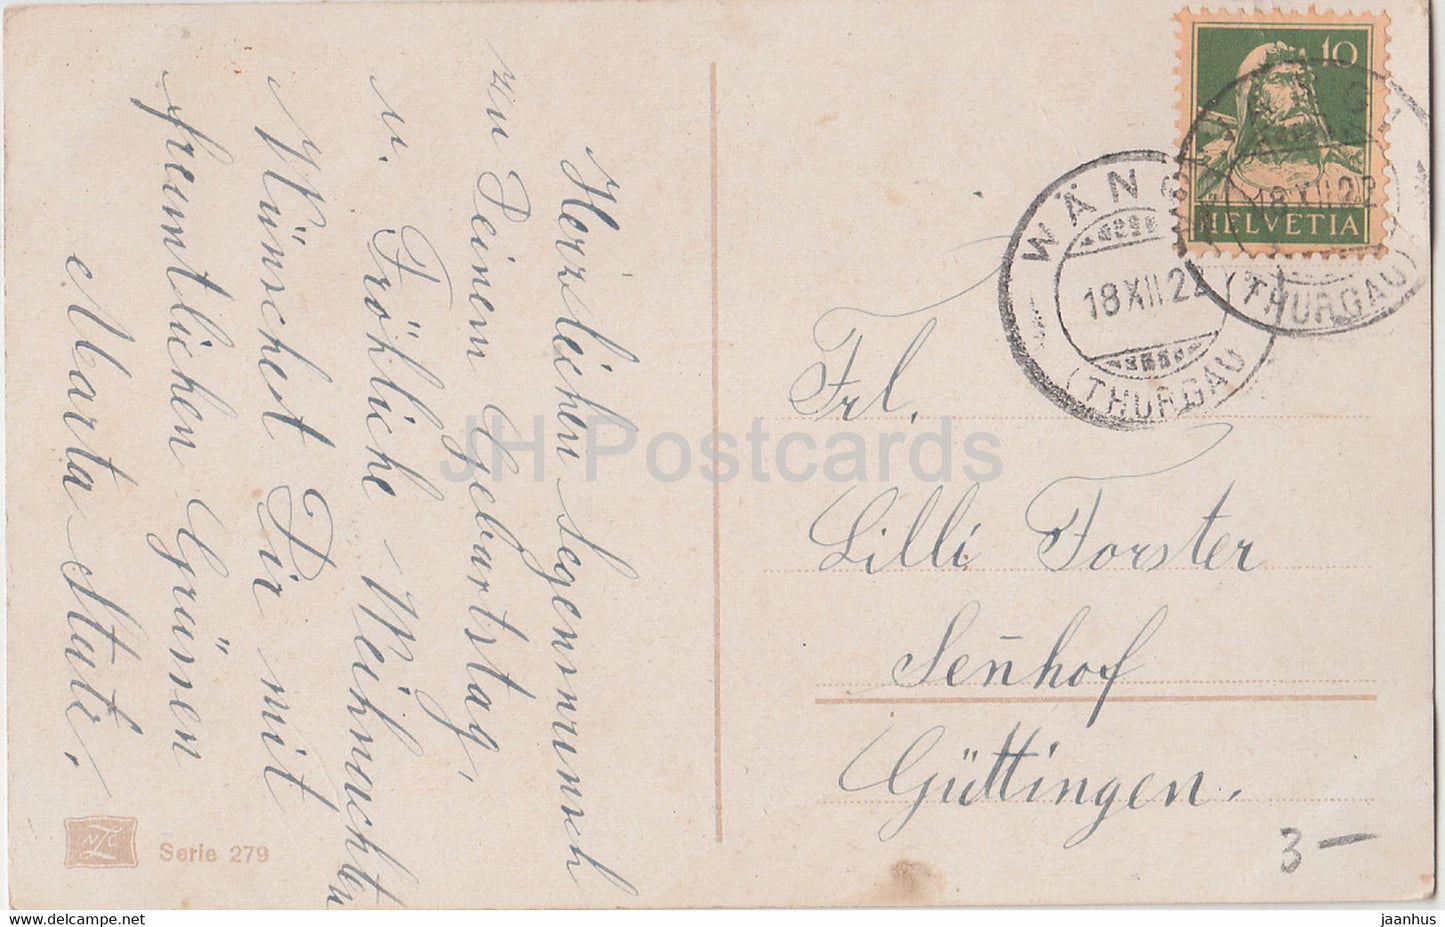 Herzlichen Segenswunsch
zu Deinem Geburtstag,
u. Fröhliche Weihnachten
Wünschet Dir mit
freundlichen Grüssen
Marta Stutz.
Serie 279
10
HELVETIA
WÄNGI
18 XII 22
(THURGAU)
18 XII 22
(THURGAU)
Frl.
Lilli Forster
Senn̄hof
Güttingen.
3 —
JH Postcards
jaanhus